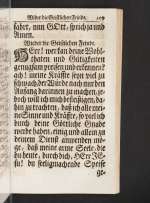 Wider die Geistlichen Feinde. 109
sabet, nun GOtt, sprich ja und
Amen.
Wider die Geistlichen Feinde.
HErr! wer kan deine Wohl-
thaten und Gütigkeiten
genugsam preisen und erkennen?
ach! meine Kräfte seyn viel zu
schwach der Würde nach nur den
Anfang darinnen zu machen,
doch will ich mich befleißigen, da-
hin zu trachten, daß ich alle mei-
ne Sinne und Kräfte, so viel ich
durch deine Göttliche Gnade
werde haben, einig und allein zu
deinem Dienst anwenden mö-
ge. Daß meine arme Seele
du heute, durch dich, HErr JE-
su! du stelgmachende Speise
ge-